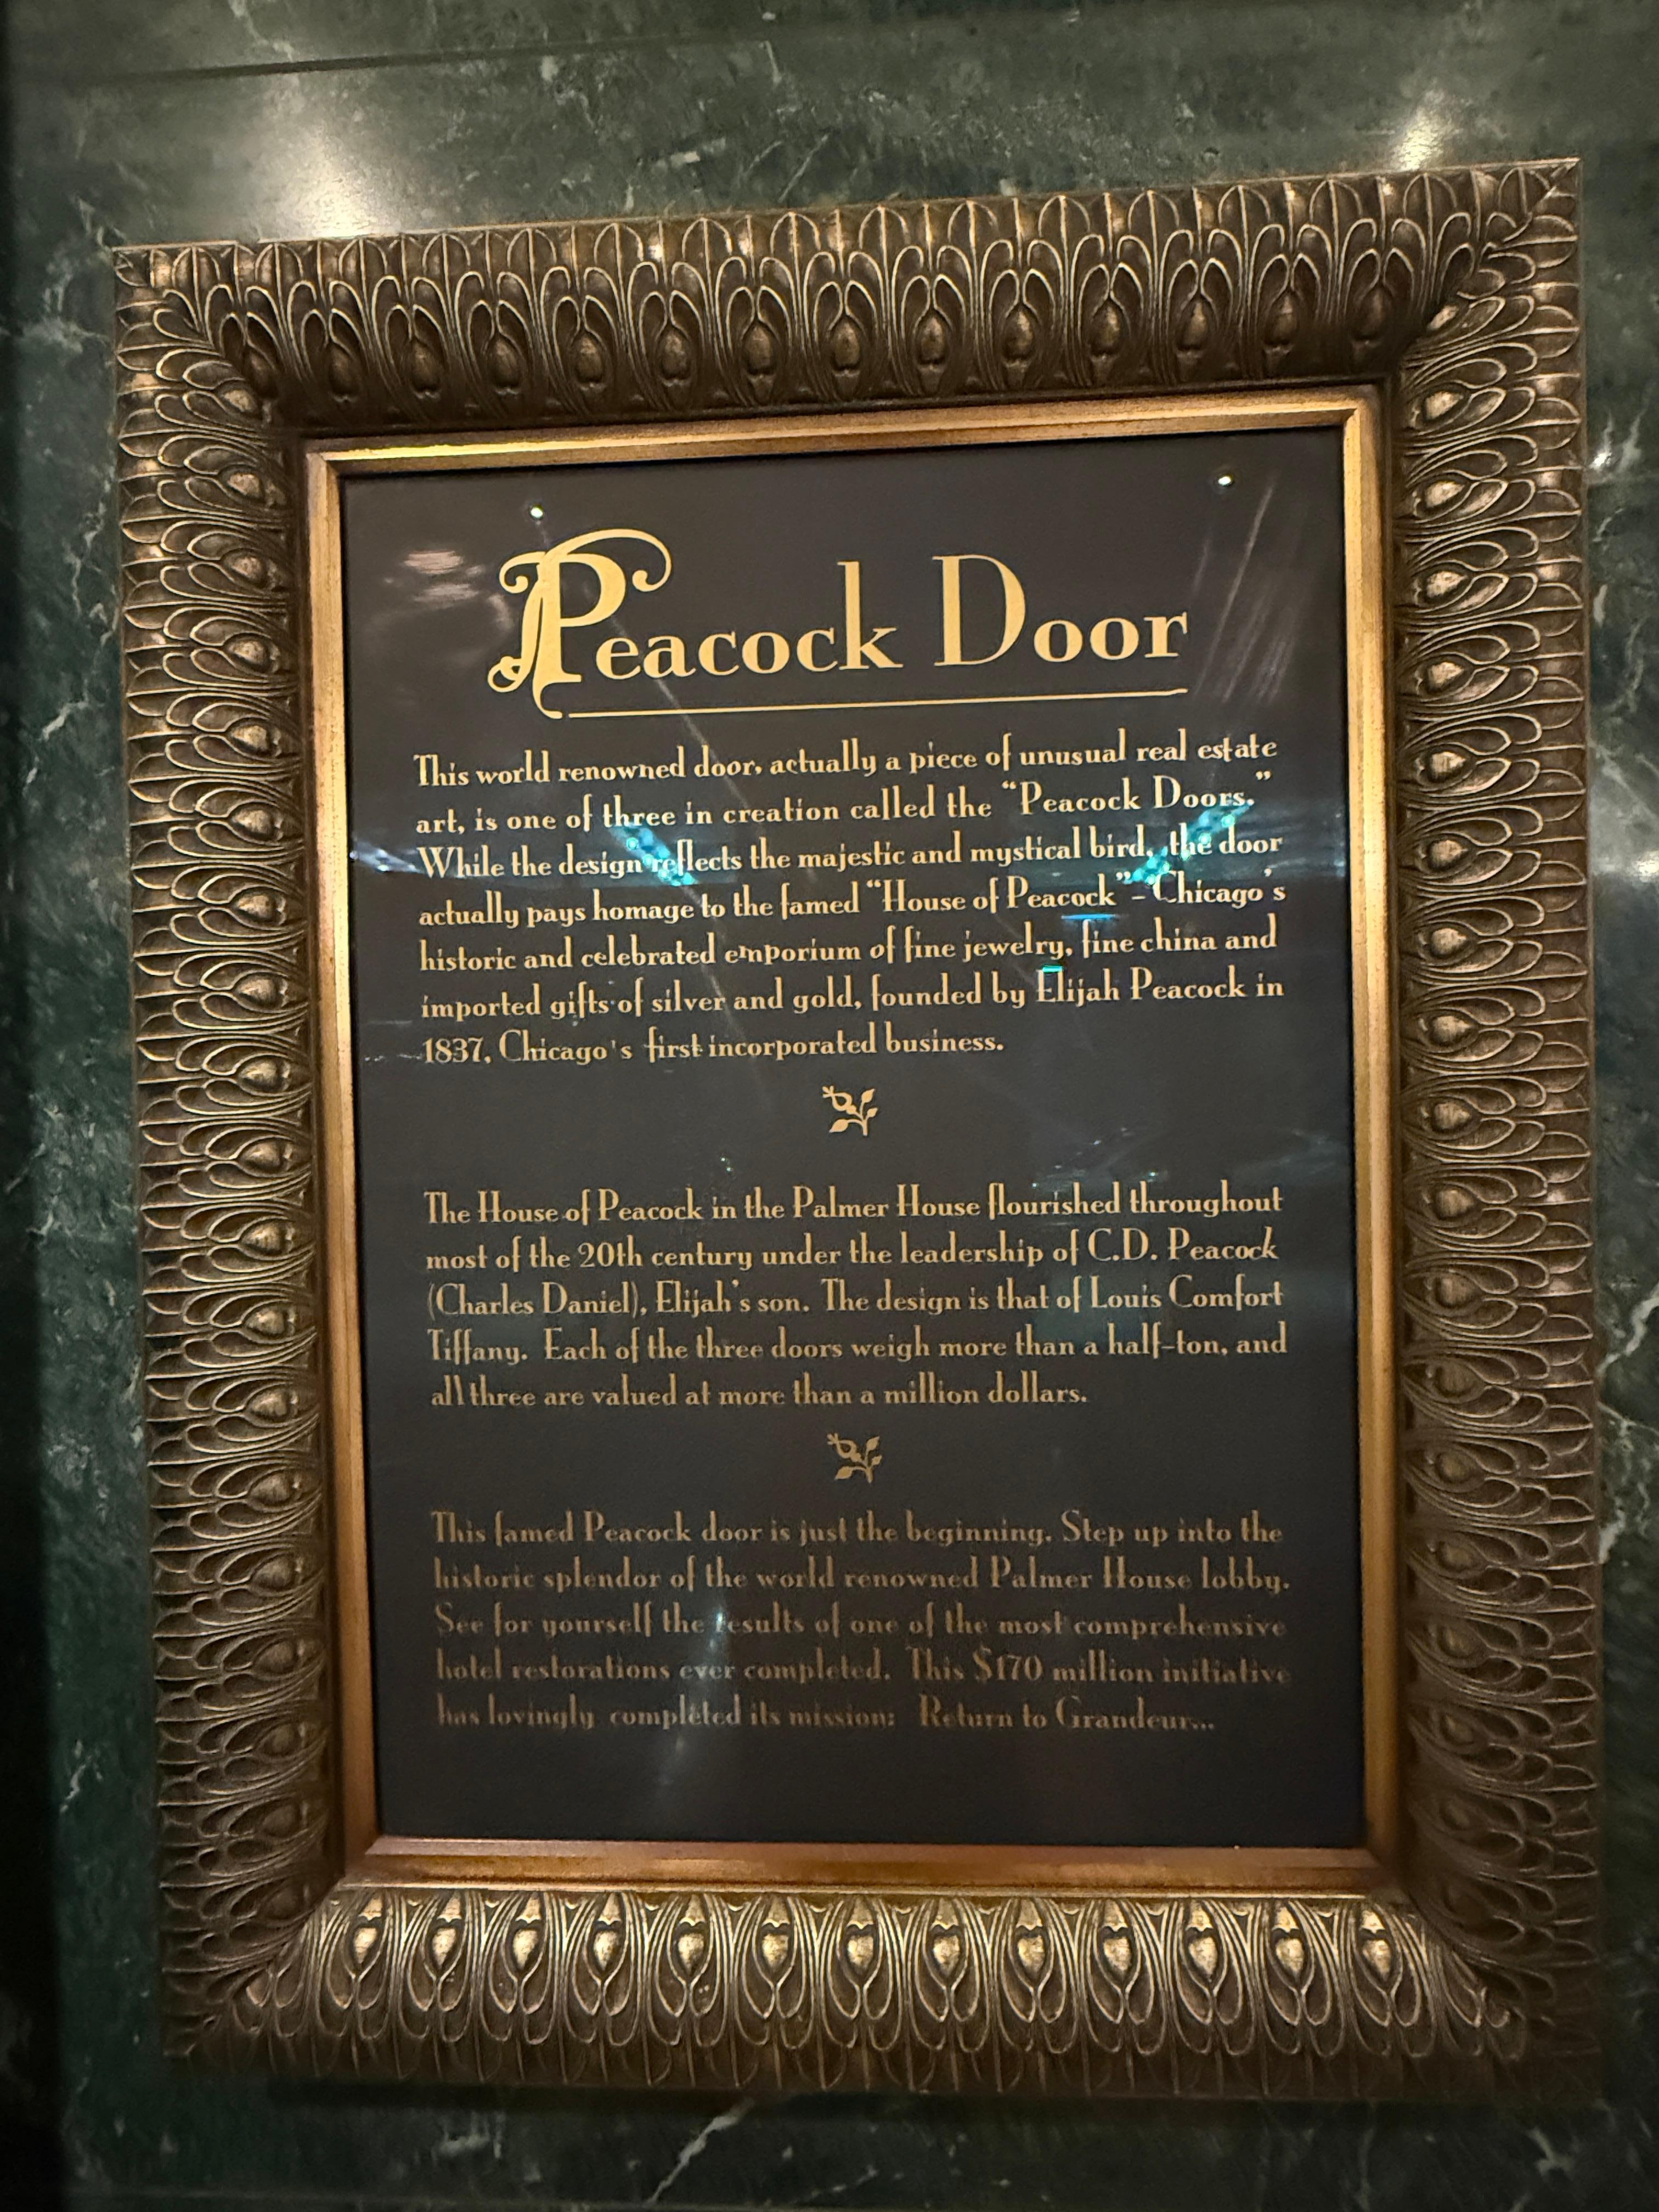 Peacock Door
This world renowned door, actually a piece of unusual real estate
art, is one of three in creation called the “Peacock Doors.”
While the design reflects the majestic and mystical bird, the door
actually pays homage to the famed “House of Peacock” - Chicago's
historic and celebrated emporium of fine jewelry, fine china and
imported gifts of silver and gold, founded by Elijah Peacock in
1837, Chicago's first incorporated business.
The House of Peacock in the Palmer House flourished throughout
most of the 20th century under the leadership of C.D. Peacock
(Charles Daniel), Elijah's son. The design is that of Louis Comfort
Tiffany. Each of the three doors weigh more than a half-ton, and
all three are valued at more than a million dollars.
This famed Peacock door is just the beginning. Step up into the
historic splendor of the world renowned Palmer House lobby.
See for yourself the results of one of the most comprehensive
hotel restorations ever completed. This $170 million initiative
has lovingly completed its mission: Return to Grandeur...